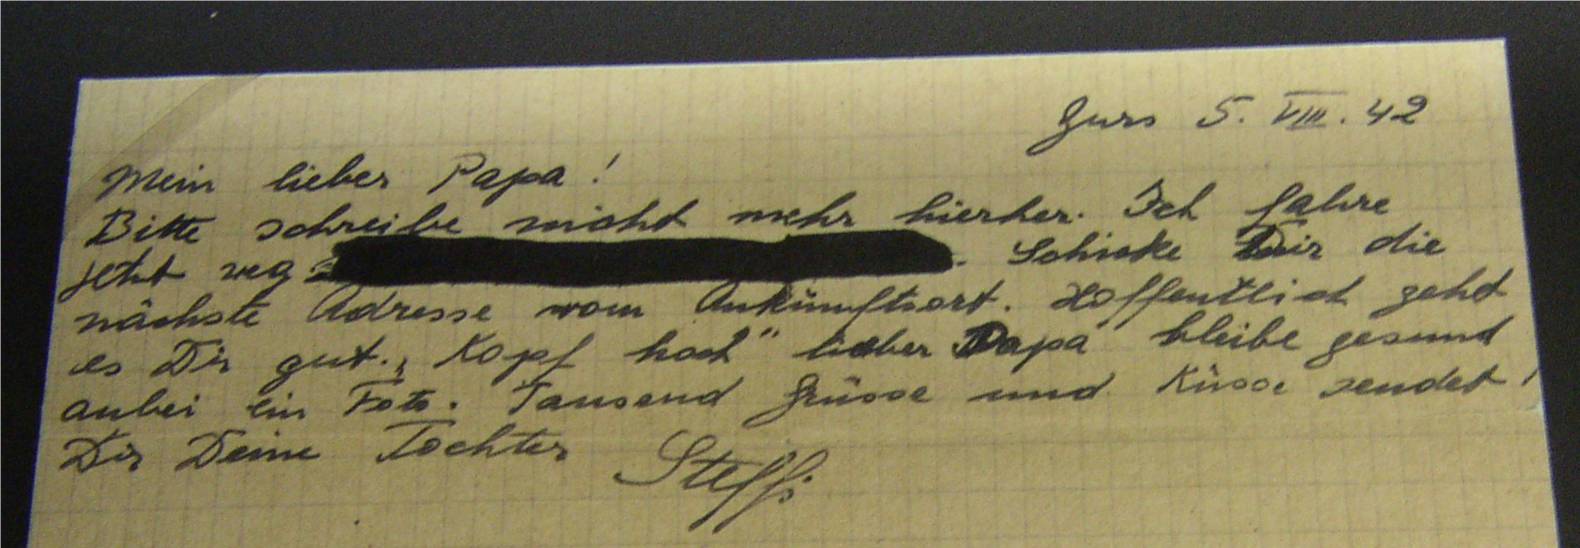 Gurs 5. VIII. 42
Mein lieber Papa!
Bitte schreibe nicht mehr hierher. Ich fahre
jetzt weg . Schicke Dir die
nächste Adresse vom Ankunftsort. Hoffentlich geht
es Dir gut. „Kopf hoch" lieber Papa bleibe gesund
anbei ein Foto. Tausend Grüsse und Küsse sendet
Dir Deine Tochter Steffi